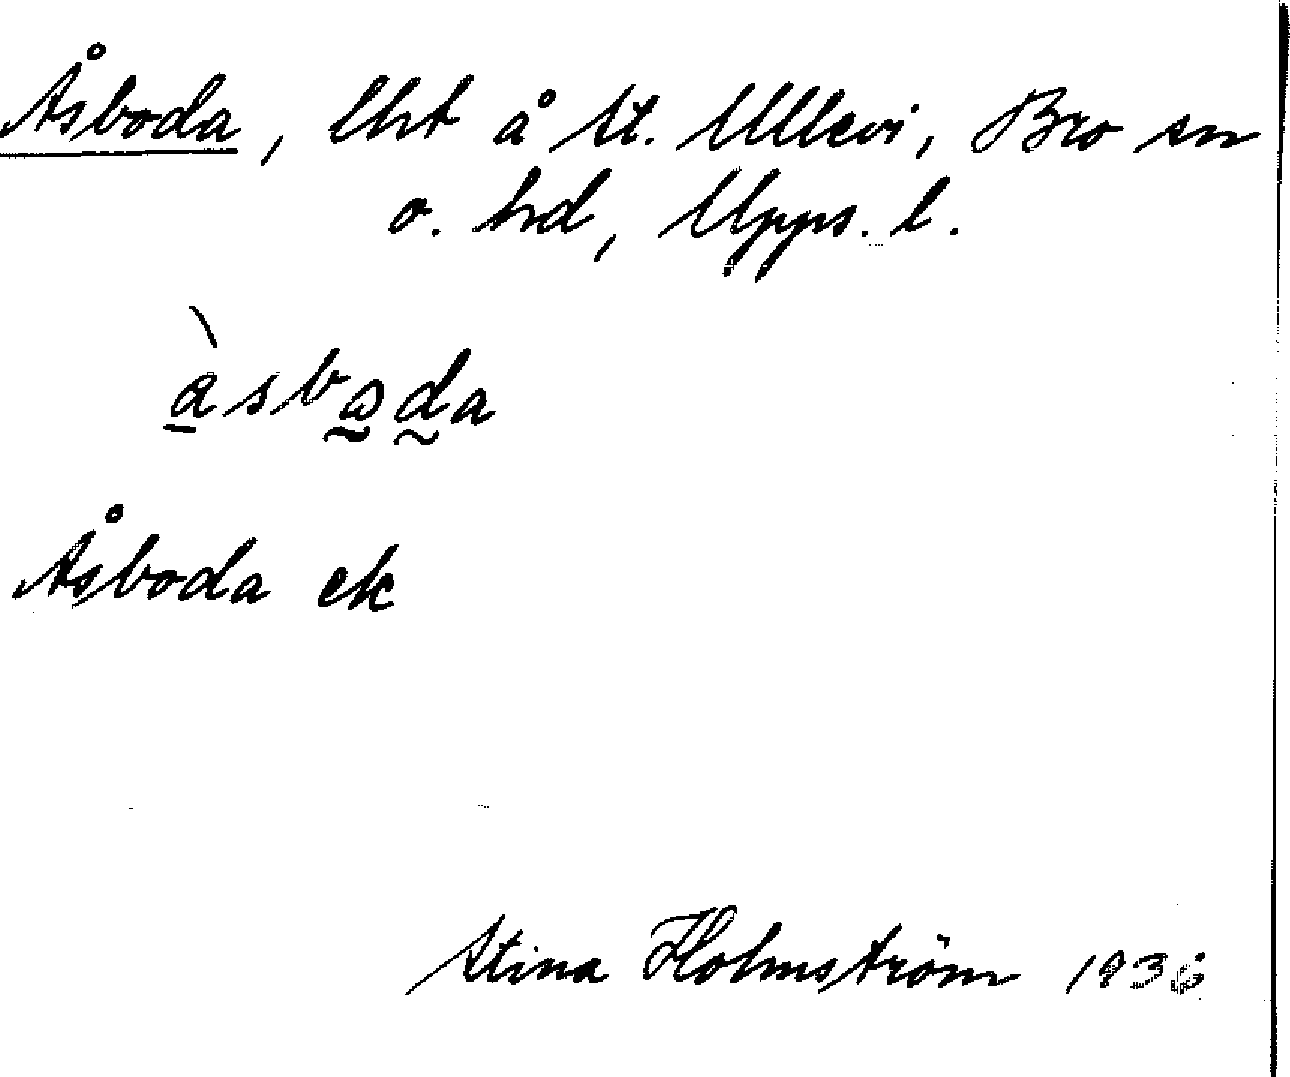 Åsboda, lht å St. Ullevi, Bro sn
o. hd, Upps. l.
Åsboda ek
Stina Holmström 1936